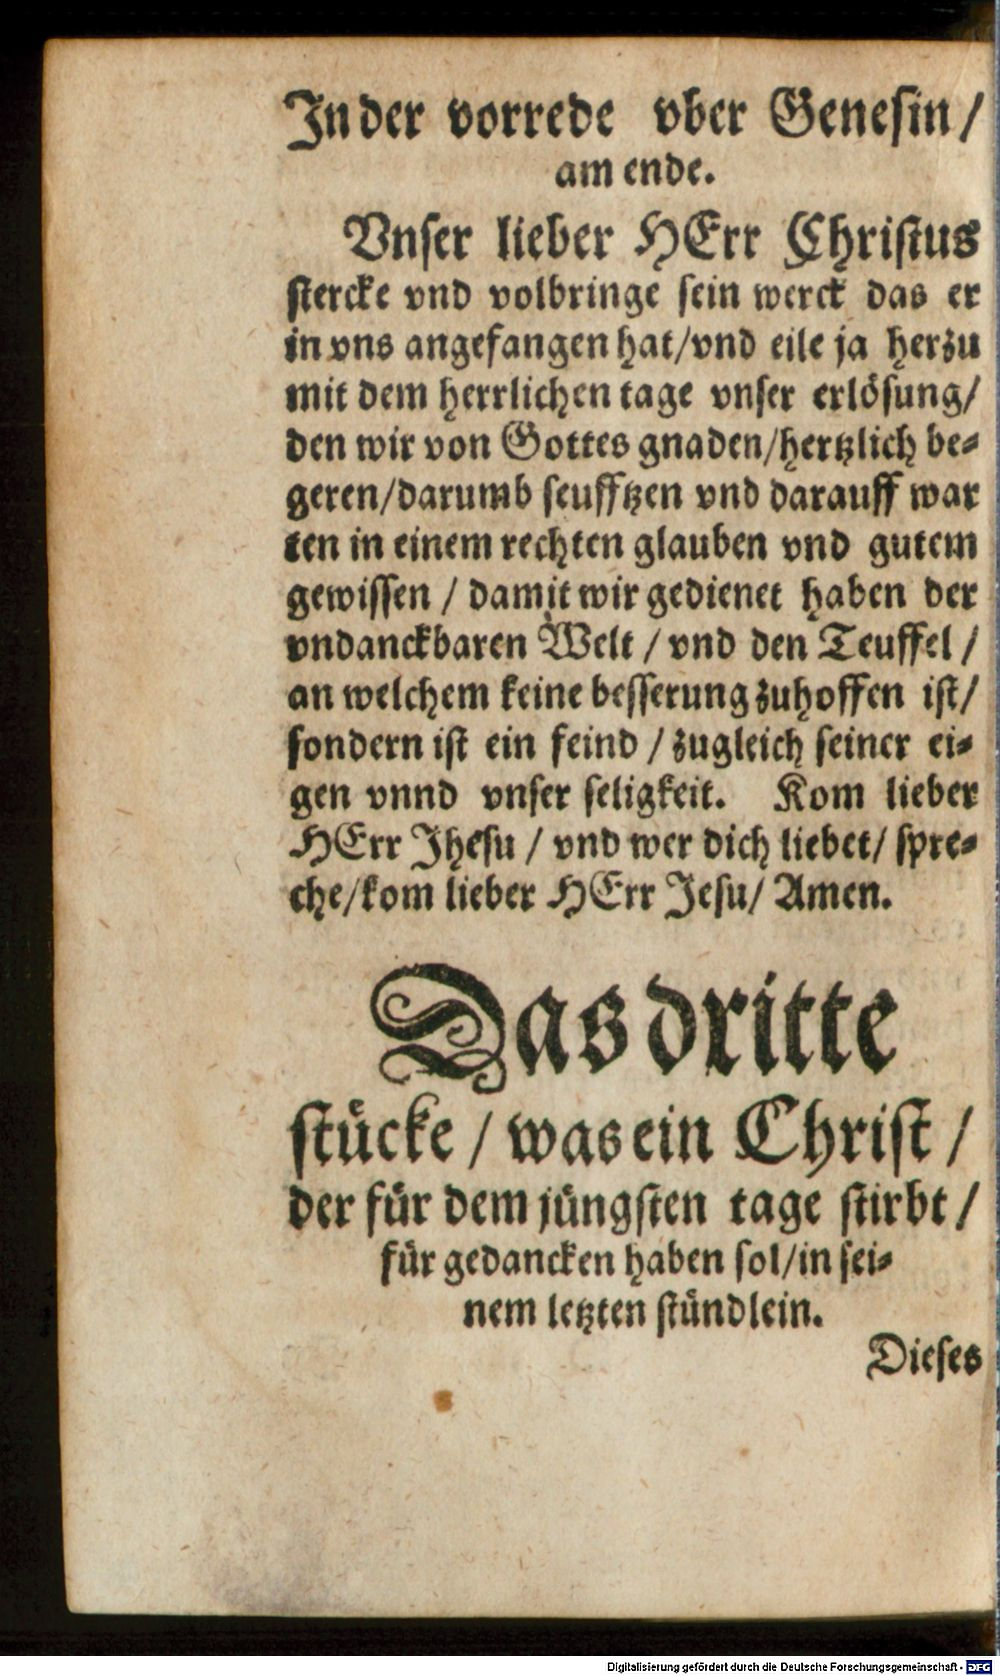 In der vorrede vber Genesin /
am ende.
Vnser lieber HErr Christus
stercke vnd volbringe sein werck das er
in vns angefangen hat/vnd eile ja herzu
mit dem herrlichen tage vnser erlösung/
den wir von Gottes gnaden/hertzlich be-
geren/darumb seufftzen vnd darauff war
ten in einem rechten glauben vnd gutem
gewissen / damit wir gedienet haben der
vndanckbaren Welt / vnd den Teuffel /
an welchem keine besserung zuhoffen ist/
sondern ist ein feind / zugleich seiner ei-
gen vnnd vnser seligkeit. Kom lieber
HErr Jhesu / vnd wer dich liebet/ spre-
che/kom lieber HErr Jesu/ Amen.
Das dritte
stücke / was ein Christ /
der für dem jüngsten tage stirbt /
für gedancken haben sol/in sei-
nem letzten stündlein.
Dieses
Digitalisierung gefördert durch die Deutsche Forschungsgemeinschaft - DFG